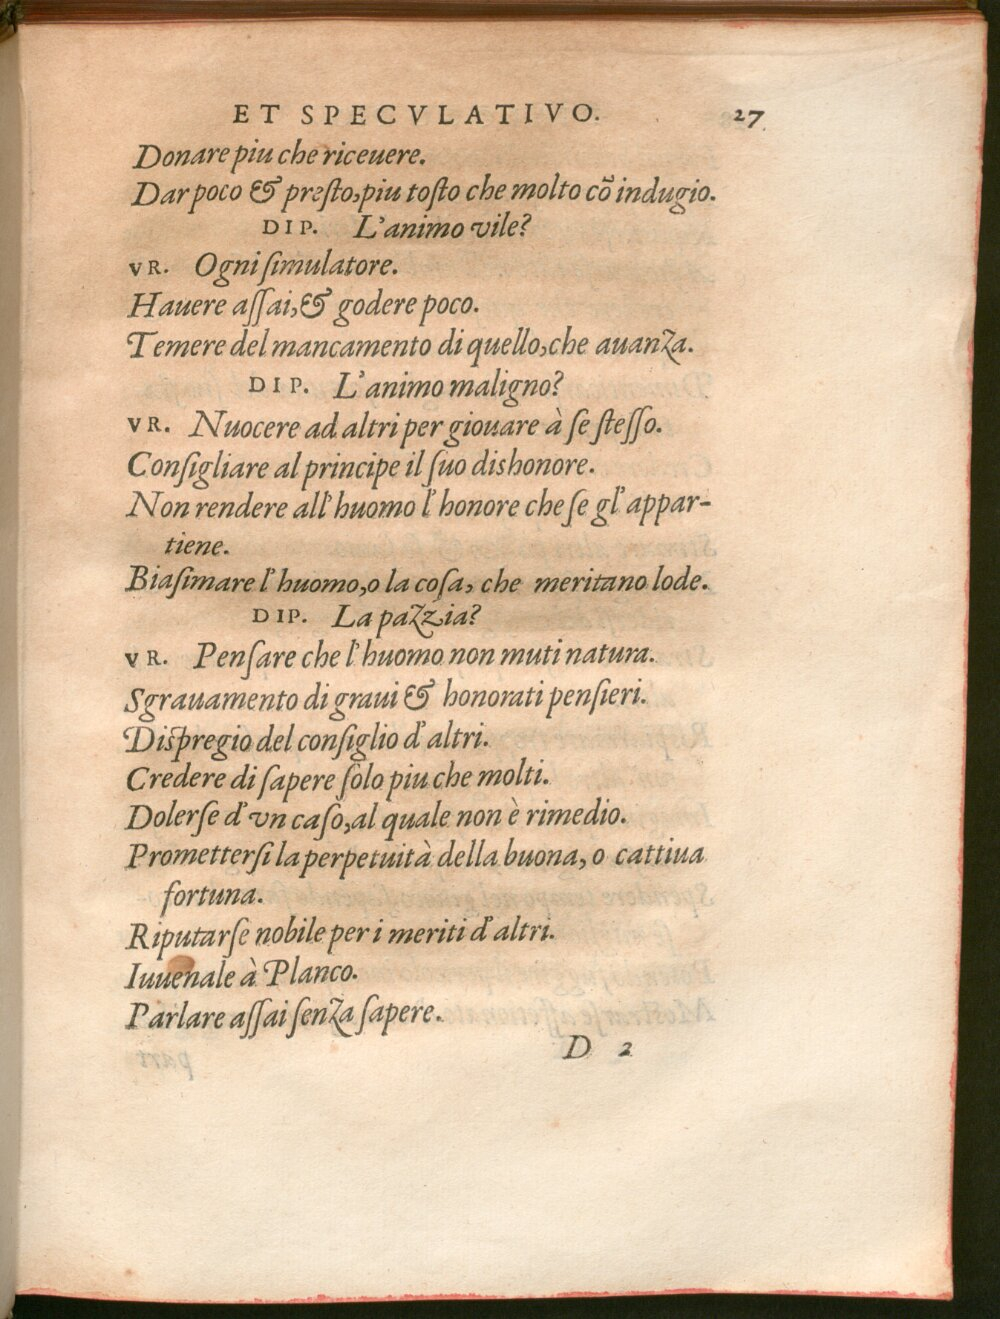 ET SPECVLATIVO. 27
Donare piu che riceuere.
Dar poco & presto, piu tosto che molto cõ indugio.
DIP. L'animo vile?
VR. Ogni simulatore.
Hauere assai, & godere poco.
Temere del mancamento di quello, che auanza.
DIP. L'animo maligno?
VR. Nuocere ad altri per giouare à se stesso.
Consigliare al principe il suo dishonore.
Non rendere all'huomo l'honore che se gl'appar-
tiene.
Biasimare l'huomo, o la cosa, che meritano lode.
DIP. La pazzia?
VR. Pensare che l'huomo non muti natura.
Sgrauamento di graui & honorati pensieri.
Dispregio del consiglio d'altri.
Credere di sapere solo piu che molti.
Dolerse d'vn caso, al quale non è rimedio.
Promettersi la perpetuità della buona, o cattiua
fortuna.
Riputarse nobile per i meriti d'altri.
Iuuenale à Planco.
Parlare assai senza sapere.
D 2